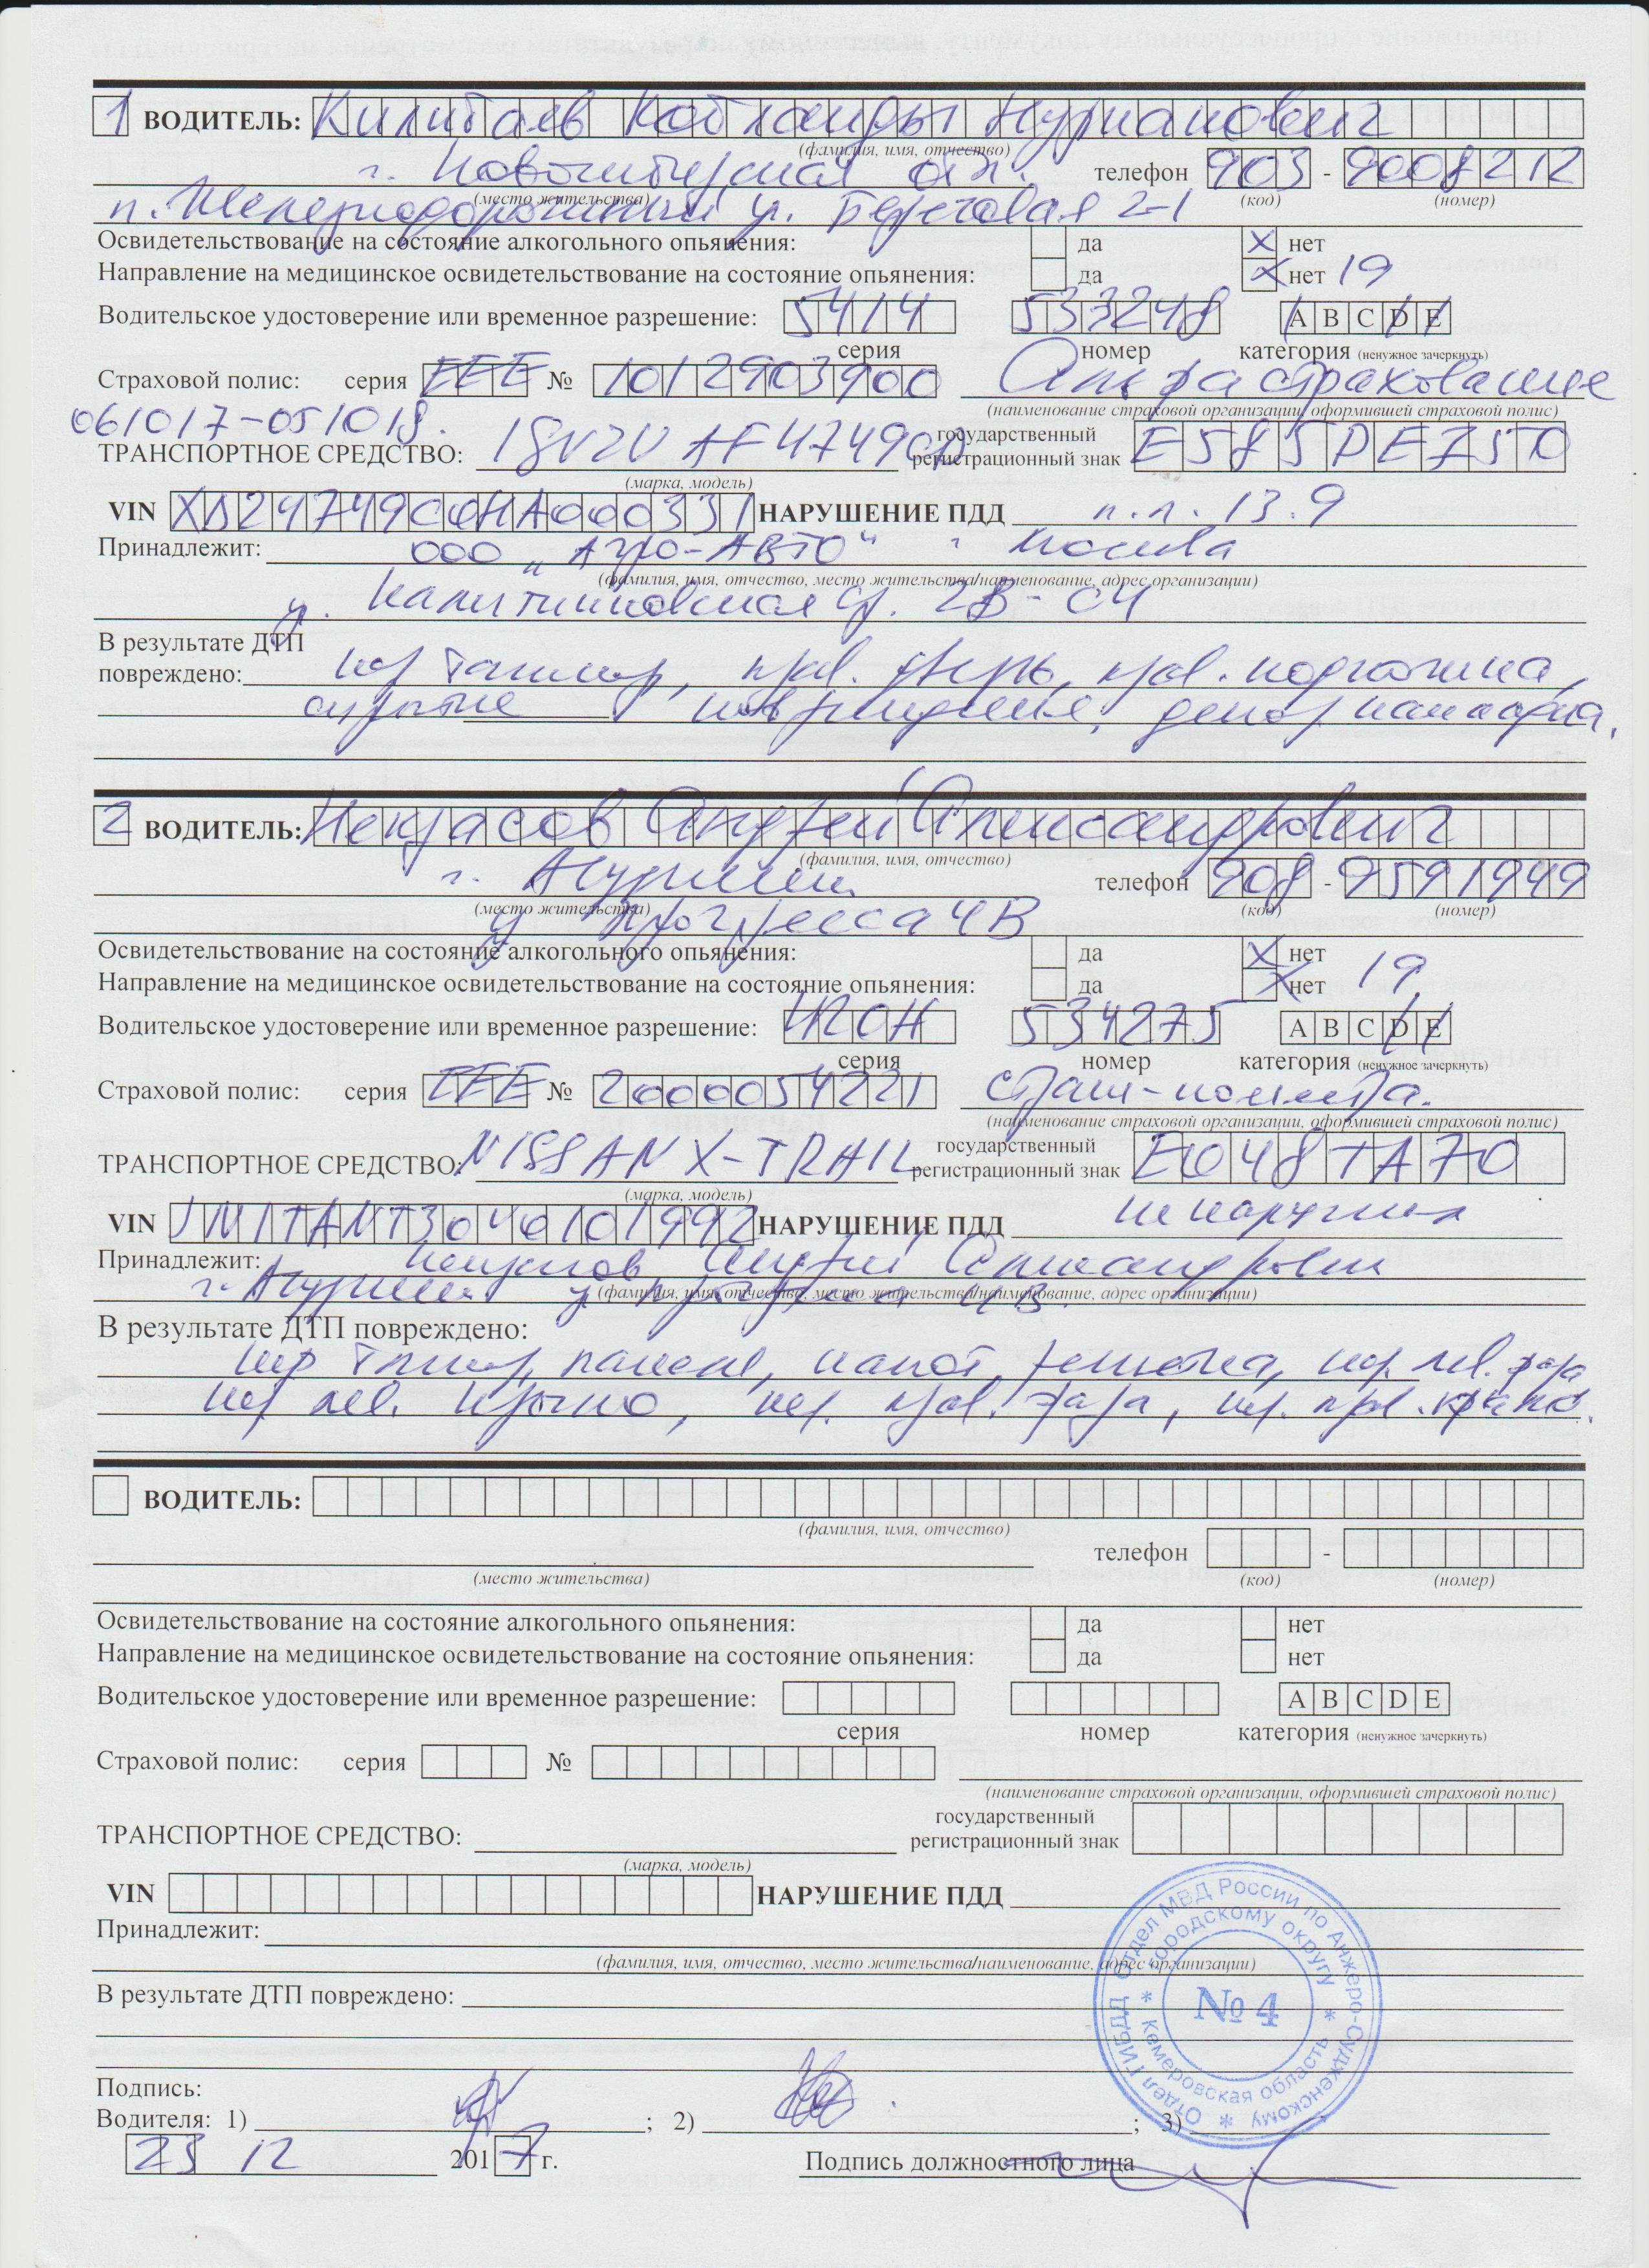 1 ВОДИТЕЛЬ: Килибаев Кобланды Нурланович
(фамилия, имя, отчество)
г. Новосибирская обл. телефон 903 - 9008212
(место жительства) (код) (номер)
п. Железнодорожный ул. Береговая 2-1
Освидетельствование на состояние алкогольного опьянения: да х нет
Направление на медицинское освидетельствование на состояние опьянения: да х нет 19
Водительское удостоверение или временное разрешение: 5414 533248 A B C D E
серия номер категория (ненужное зачеркнуть)
Страховой полис: серия ЕЕЕ № 1012903900 Альфа страхование
(наименование страховой организации, оформившей страховой полис)
061017-051018.
ТРАНСПОРТНОЕ СРЕДСТВО: государственный регистрационный знак Е585РЕ750
(марка, модель)
VIN НАРУШЕНИЕ ПДД п.п. 13.9
Принадлежит: ООО "Агро-АВТО" г Москва
(фамилия, имя, отчество, место жительства/наименование, адрес организации)
ул.
В результате ДТП
повреждено: пер бампер, прав. дверь, прав. подножка,
скрытые повреждения,
2 ВОДИТЕЛЬ: Некрасов Андрей Александрович
(фамилия, имя, отчество)
г. телефон 908 - 9591949
(место жительства) (код) (номер)
у Прогресса 4В
Освидетельствование на состояние алкогольного опьянения: да х нет
Направление на медицинское освидетельствование на состояние опьянения: да х нет 19
Водительское удостоверение или временное разрешение: 534275 A B C D E
серия номер категория (ненужное зачеркнуть)
Страховой полис: серия ЕЕЕ № 2000054221
(наименование страховой организации, оформившей страховой полис)
ТРАНСПОРТНОЕ СРЕДСТВО: NISSAN X-TRAIL государственный регистрационный знак Е048ТА70
(марка, модель)
VIN JN1TANT30U0101992 НАРУШЕНИЕ ПДД не нарушил
Принадлежит: Некрасов Андрей Александрович
г. у Прогресса 4В.
(фамилия, имя, отчество, место жительства/наименование, адрес организации)
В результате ДТП повреждено:
пер бампер, капот, решетка, пер. лев. фара
пер лев. крыло, пер. прав. фара, пер. прав. крыло.
ВОДИТЕЛЬ:
(фамилия, имя, отчество)
телефон -
(место жительства) (код) (номер)
Освидетельствование на состояние алкогольного опьянения: да нет
Направление на медицинское освидетельствование на состояние опьянения: да нет
Водительское удостоверение или временное разрешение: A B C D E
серия номер категория (ненужное зачеркнуть)
Страховой полис: серия №
(наименование страховой организации, оформившей страховой полис)
ТРАНСПОРТНОЕ СРЕДСТВО: государственный регистрационный знак
(марка, модель)
VIN НАРУШЕНИЕ ПДД
Принадлежит:
(фамилия, имя, отчество, место жительства/наименование, адрес организации)
В результате ДТП повреждено:
Отдел ГИБДД Отдел МВД России по Анжеро-Судженскому
городскому округу
Кемеровская область
№ 4
Подпись:
Водителя: 1) ; 2) ; 3)
23 12 2017 г. Подпись должностного лица